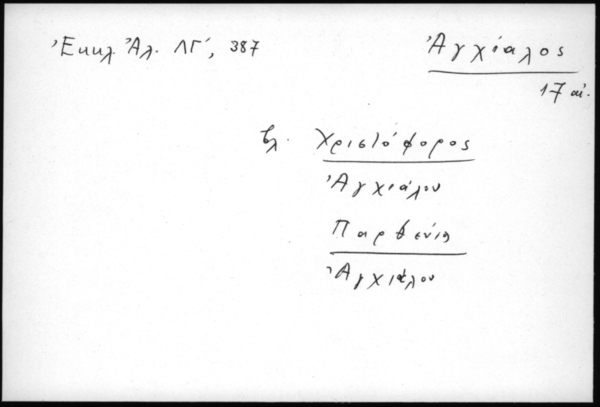 Ἐκκλ. Ἀλ. ΛΓ΄, 387
Ἀγχίαλος
17 αἰ.
βλ. Χριστόφορος
Ἀγχιάλου
Παρθένιος
Ἀγχιάλου